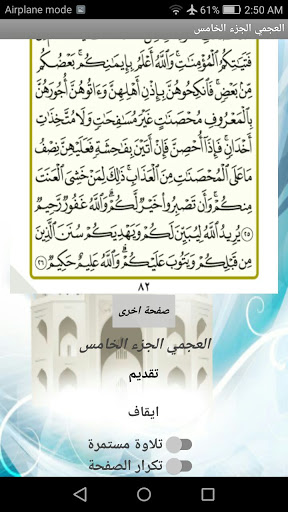 Airplane mode 2:50 AM
العجمي الجزء الخامس
فَتَيَٰتِكُمُ ٱلْمُؤْمِنَٰتِ وَٱللَّهُ أَعْلَمُ بِإِيمَٰنِكُم بَعْضُكُم
مِّنۢ بَعْضٍ فَٱنكِحُوهُنَّ بِإِذْنِ أَهْلِهِنَّ وَءَاتُوهُنَّ أُجُورَهُنَّ
بِٱلْمَعْرُوفِ مُحْصَنَٰتٍ غَيْرَ مُسَٰفِحَٰتٍ وَلَا مُتَّخِذَٰتِ
أَخْدَانٍ فَإِذَآ أُحْصِنَّ فَإِنْ أَتَيْنَ بِفَٰحِشَةٍ فَعَلَيْهِنَّ نِصْفُ
مَا عَلَى ٱلْمُحْصَنَٰتِ مِنَ ٱلْعَذَابِ ذَٰلِكَ لِمَنْ خَشِىَ ٱلْعَنَتَ
مِنكُمْ وَأَن تَصْبِرُوا۟ خَيْرٌ لَّكُمْ وَٱللَّهُ غَفُورٌ رَّحِيمٌ
٢٥ يُرِيدُ ٱللَّهُ لِيُبَيِّنَ لَكُمْ وَيَهْدِيَكُمْ سُنَنَ ٱلَّذِينَ
مِن قَبْلِكُمْ وَيَتُوبَ عَلَيْكُمْ وَٱللَّهُ عَلِيمٌ حَكِيمٌ ٢٦
٨٢
صفحة اخرى
العجمي الجزء الخامس
تقديم
ايقاف
تلاوة مستمرة
تكرار الصفحة